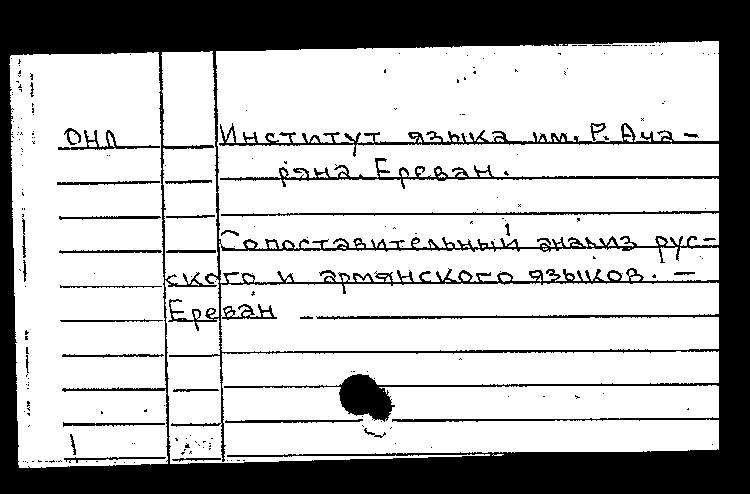 ОНЛ Институт языка им. Р. Ача-
ряна. Ереван.
Сопоставительный анализ рус-
ского и армянского языков. —
Ереван —